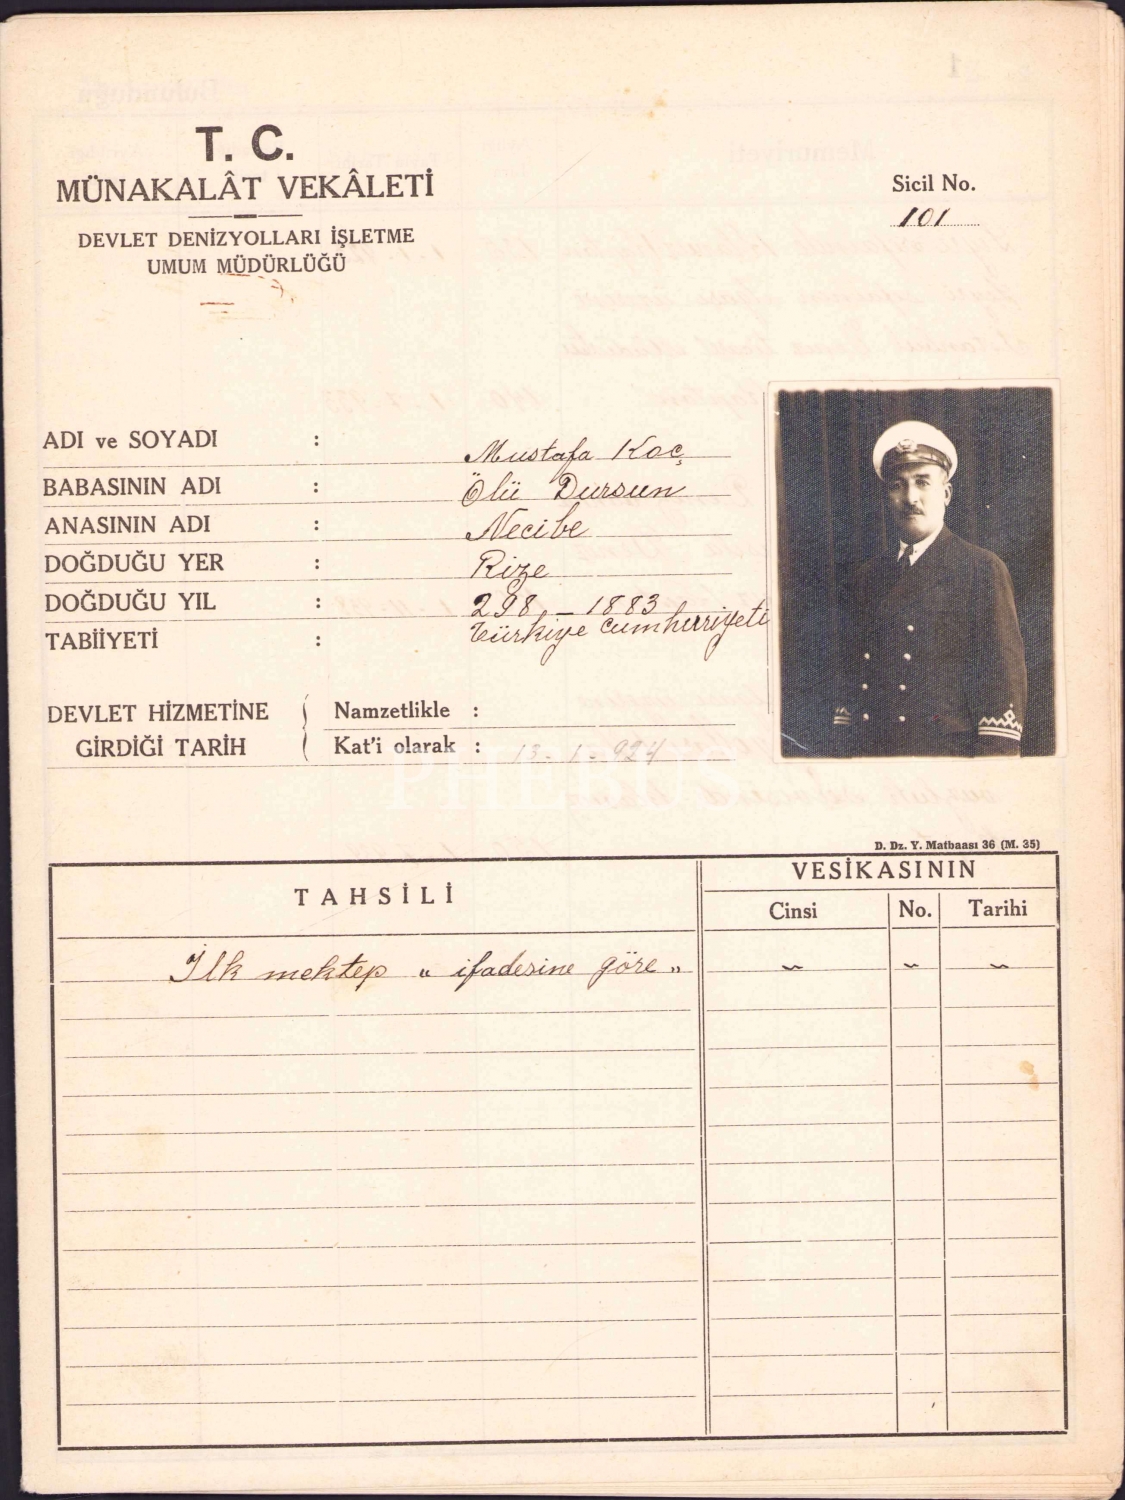 T. C.
MÜNAKALÂT VEKÂLETİ
DEVLET DENİZYOLLARI İŞLETME
UMUM MÜDÜRLÜĞÜ
Sicil No.
101
ADI ve SOYADI : Mustafa Koç
BABASININ ADI : Ölü Dursun
ANASININ ADI : Necibe
DOĞDUĞU YER : Rize
DOĞDUĞU YIL : 298 - 1883
TABİİYETİ : Türkiye Cumhurriyeti
DEVLET HİZMETİNE GİRDİĞİ TARİH
Namzetlikle :
Kat'i olarak : 13-1-924
PHEBUS
D. Dz. Y. Matbaası 36 (M. 35)
TAHSİLİ
VESİKASININ
Cinsi No. Tarihi
İlk mektep „ ifadesine göre „